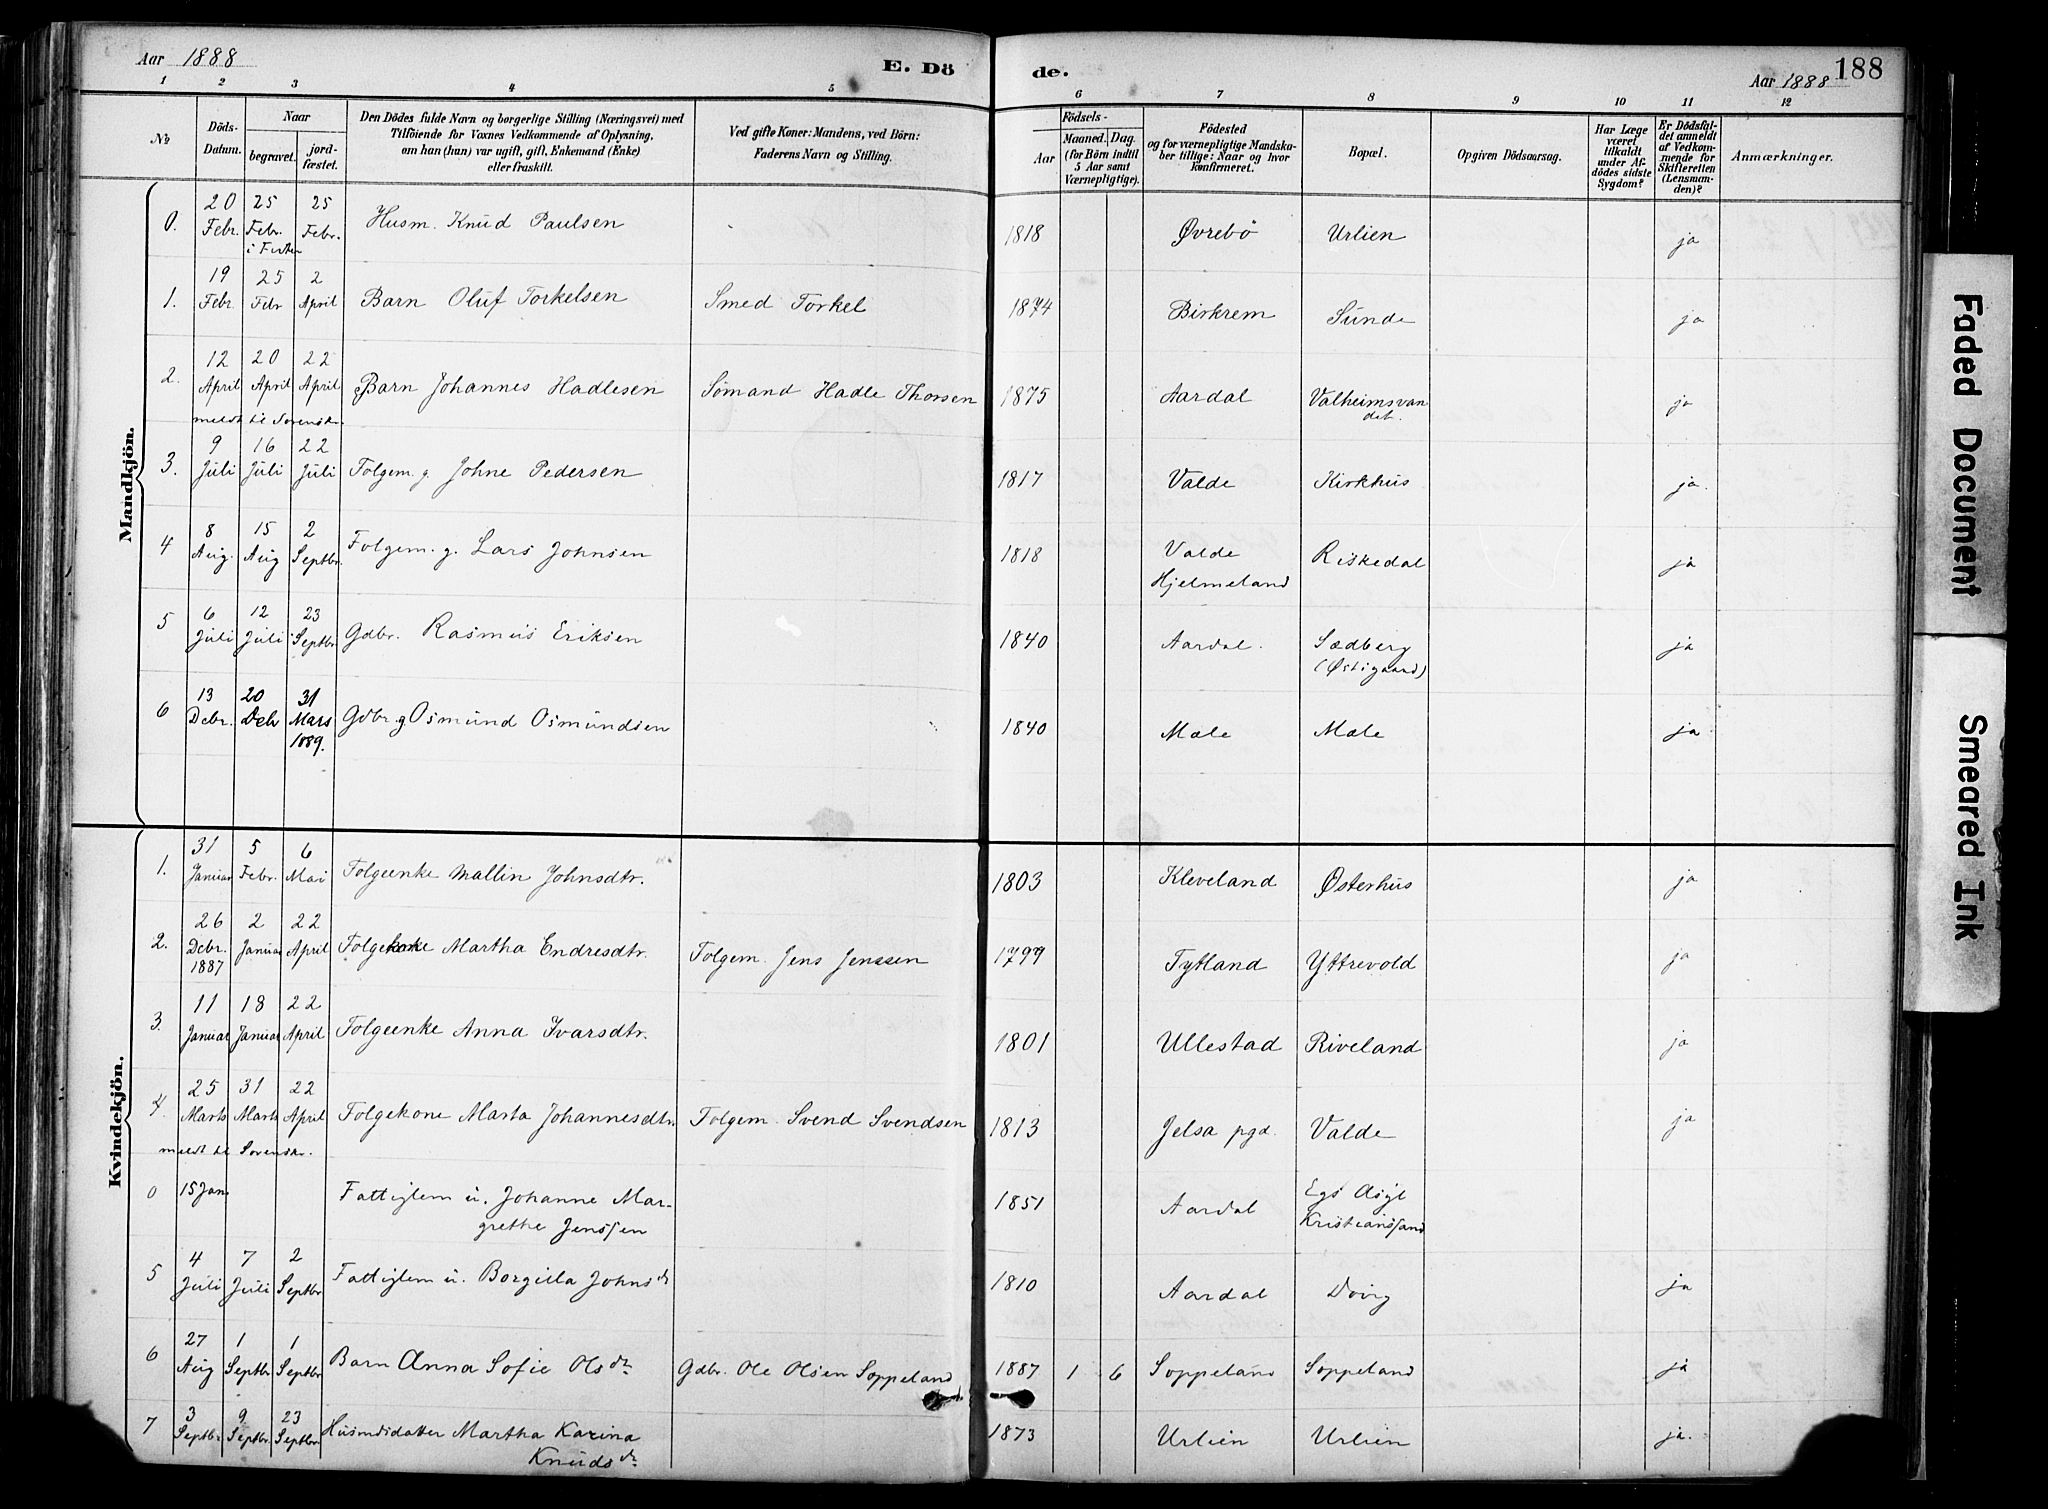 Aar 1888
E. Dö
de.
Aar 1888
188
1 2 3 4 5 6 7 8 9 10 11 12
No
Döds-Datum.
Naar
begravet.
jordfæstet.
Den Dödes fulde Navn og borgerlige Stilling (Næringsvei) med
Tilföiende for Voxnes Vedkommende af Oplysning,
om han (hun) var ugift, gift, Enkemand (Enke)
eller fraskilt.
Ved gifte Koner: Mandens, ved Börn:
Faderens Navn og Stilling.
Födsels-
Aar
Maaned. Dag.
(for Börn indtil
5 Aar samt
Værnepligtige).
Födested
og for værnepligtige Mandska-
ber tillige: Naar og hvor
konfirmeret.
Bopæl.
Opgiven Dödsaarsag.
Har Læge
været
tilkaldt
under Af-
dödes sidste
Sygdom?
Er Dödsfal-
det anmeldt
af Vedkom-
mende for
Skifteretten
(Lensman-
den)?
Anmærkninger.
Mandkjön.
0. 20 Febr. 25 Febr. 25 Febr. Husm. Knud Paulsen 1818 Øvrebö Urlien ja
1. 19 Febr. 25 Febr 2 April Barn Oluf Torkelsen Smed Torkel 1874 Birkrem Sunde ja
2. 12 April 20 April 22 April Barn Johannes Hadlesen Sømand Hadle Thorsen 1875 Aardal Valheimsvandet. ja
meldt til Sorenskr.
3. 9 Juli 16 Juli 22 Juli Folgem. g. Johne Pedersen 1817 Valde Kirkhus ja.
4 8 Aug. 15 Aug 2 Septbr. Folgem. g. Lars Johnsen 1818 Valde Hjelmeland Riskedal ja
5 6 Juli 12 Juli 23 Septbr Gdbr. Rasmus Eriksen 1840 Aardal. Sædberg (Østigaard) ja
6 13 Debr. 20 Debr 31 Mars 1889. Gdbr. g Osmund Osmundsen 1840 Mæle Mæle ja
Kvindekjön.
1. 31 Januar 5 Febr. 6 Mai Folgeenke Mallin Johnsdtr. 1803 Kleveland Østerhus ja
2. 26 Debr. 1887 2 Januar 22 April Folgekone Martha Endresdtr. Folgem. Jens Jenssen 1799 Tytland Yttrevold ja
3. 11 Januar 18 Januar 22 April Folgeenke Anna Ivarsdtr. 1801 Ullestad Riveland ja
4. 25 Marts 31 Marts 22 April Folgekone Marta Johannesdtr. Folgem. Svend Svendsen 1813 Jelsa pgd. Valde ja
meldt til Sorenskr.
0 15 Jan. Fattiglem u. Johanne Mar-
grethe Jenssen 1851 Aardal Egs Asyl Kristianssand
5 4 Juli 7 Juli 2 Septbr Fattiglem u. Borgilla Johnsdr 1810 Aardal ja
6 27 Aug 1 Septbr 1 Septbr Barn Anna Sofie Olsdr Gdbr. Ole Olsen Soppeland 1887 1 6 Soppeland Soppeland ja
7 3 Septbr 9 Septbr. 23 Septbr Husmdsdatter Martha Karina
Knudsdr 1873 Urlien Urlien ja.
Faded Document
Smeared Ink